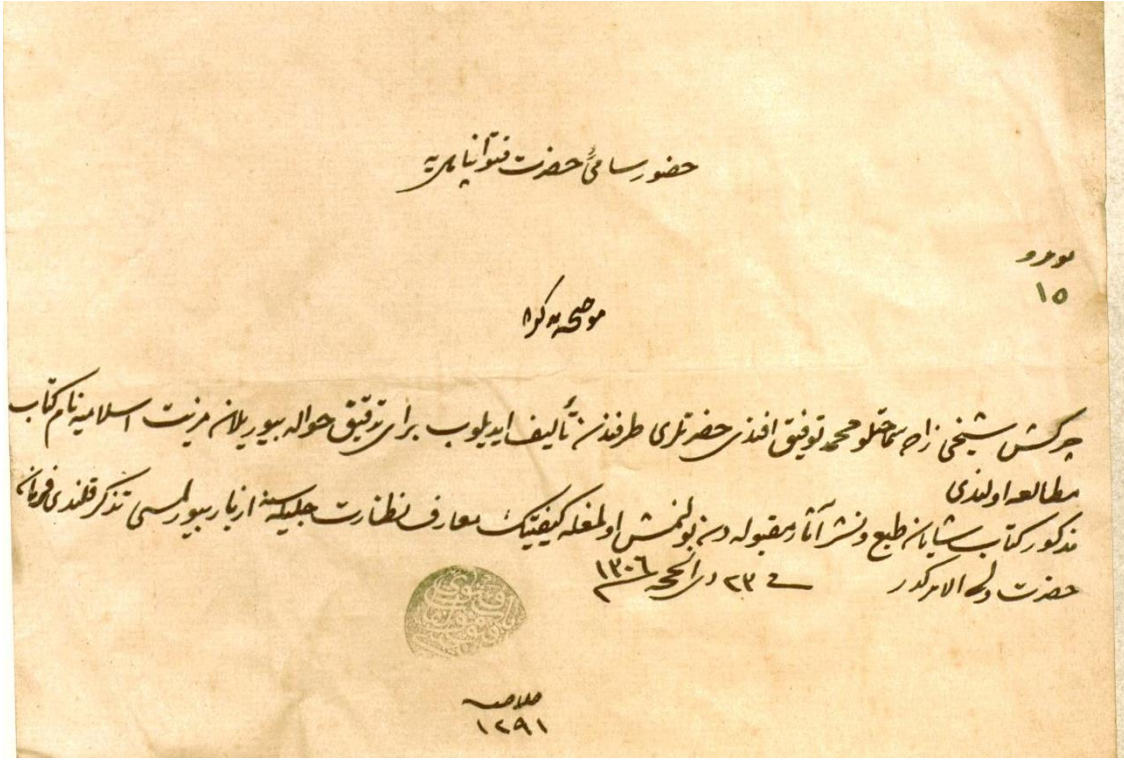 حضور سامئ حضرت فتوا پناهی‌یه
نومرو
١٥
چركش شیخی زاده سماحتلو محمد توفیق افندی حضرتلری طرفندن تألیف ایدیلوب برای تدقیق حواله بیوریلان مدنیت اسلامیه نام كتاب
مطالعه اولندی
مذكور كتاب شایان طبع ونشر آثار مقبوله دن بولنمش اولمغله كیفیتك معارف نظارت جلیله سنه ازبار بیورلمسی تذكر قلندی فرمان
حضرت ولی الامركدر فی ٢٣ ذی الحجه سنه ١٣٠٦
خلاصه
١٢٩١